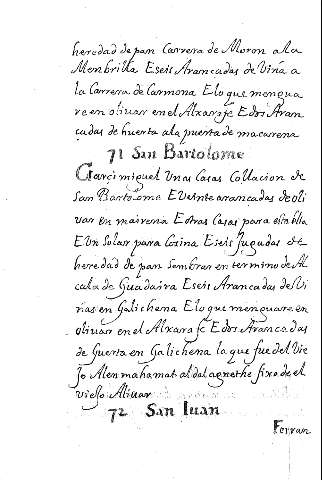 heredad de pan Carrera de Moron a la
Membrilla E seis Arancadas de Viña a
la Carrera de Carmona E lo que mengua
re en olivar en el Axarafe E dos Aran
cadas de huerta a la puerta de macarena
71 San Bartolome
Garçi miguel Unas Casas Collacion de
San Bartolome E Veinte arancadas de oli
var en mairena E otras Casas para establia
E Un Solar para Cocina E seis Jugadas de
heredad de pan Sembrar en termino de Al
cala de Guadaira E seis Arancadas de Vi
ñas en Galichena E lo que menguare en
olivar en el Alxarafe E dos Arancadas
de Guerta en Galichena la que fue del Vie
Jo Alen mahamat al dalagnethe fixo de el
viejo Alivar
72 San Iuan
Ferran